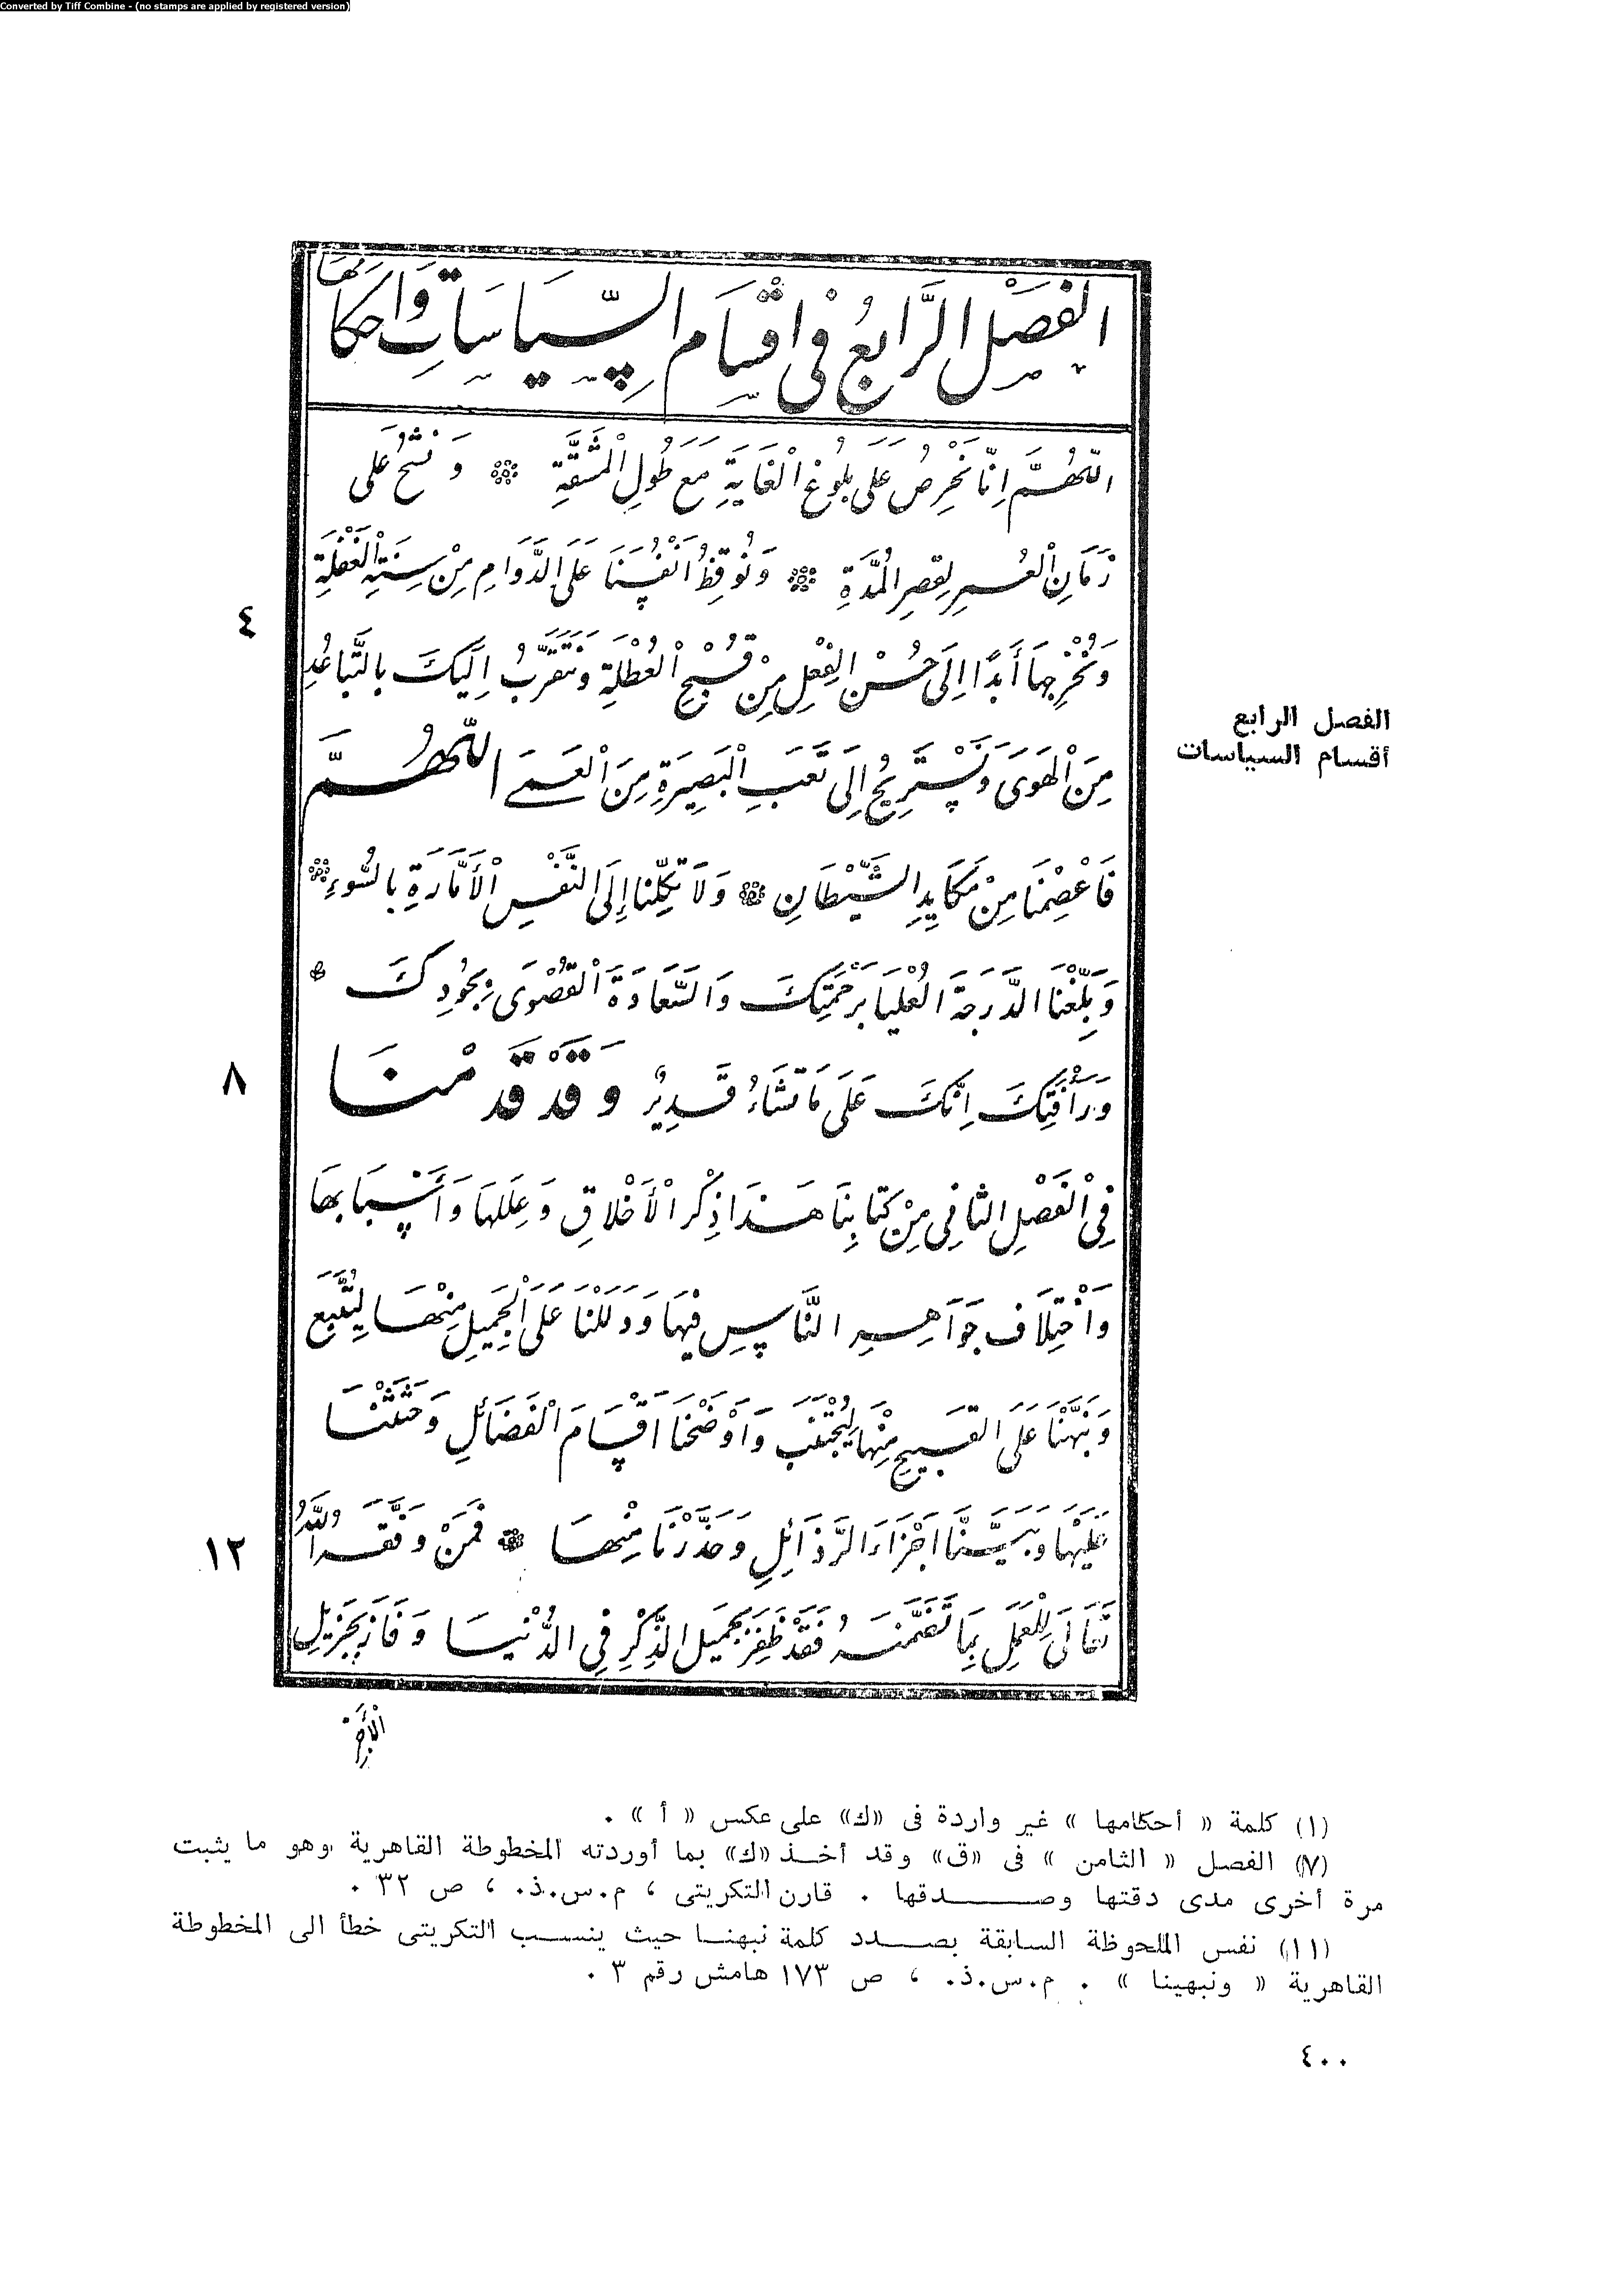 Converted by Tiff Combine - (no stamps are applied by registered version)
الفَصْل الرَّابعُ فى اقْسَام السِّيَاسَاتِ وَاحكَامهَا
اللّهُمَّ اِنَّا نَحْرِصُ عَلَى بلُوغ الْغَايَةِ مَعَ طُولِ الْمشَقَّةِ وَنشحُّ عَلَى
زمَانِ الْعُسرِ لِقصرِ الْمُدَّةِ وَنُوقِظُ اَنْفُسَنَا عَلَى الدَّوَامِ مِنْ سِنَةِ الْغَفْلَةِ
وَنُخْرِجهَا أَبَدًا اِلَى حُسْنِ الفِعْلِ مِنْ قُبْحِ الْعُطْلَةِ وَنَتَقَرَّبُ اِلَيكَ بالتَّبَاعُدِ
مِنَ الْهَوَى وَنَسْتَرِيحُ اِلَى تَعَبِ الْبَصِيَرةِ مِنَ الْعَمَى اللّهُمَّ
٤
الفصل الرابع
أقسام السياسات
فَاعْصِمْنَا مِنْ مَكَايِدِ الشَّيْطَانِ وَلاَ تَكِلْنا إِلَى النَّفْسِ الْأَمَّارَةِ بالسُّوءِ
وَبَلِّغْنَا الدَّرَجَةَ الْعُلْيَا بَرَحْمَتِكَ وَالسَّعَادَةَ الْقُصْوَى بِجُودِكَ
وَرَأْفَتِكَ اِنَّكَ عَلَى مَا تَشَاءُ قَدِيرٌ وَقَدْ قَدمْنَا
٨
فِى الْفَصْلِ الثانِى مِنْ كتَابِنَا هَذَا ذِكْر الْأَخْلاقِ وَعِلَلهَا وَأَسْبَابهَا
وَاخْتِلَاف جَوَاهِرِ النَّاسِ فيهَا وَدَلَلْنَا عَلَى الْجَمِيلِ مِنْهَا لِيُتَّبَعَ
وَنَبَّهْنَا عَلَى القَبِيحِ مِنْهَا لِيُجْتَنَبَ وَاَوْضَحْنَا اَقْسَامَ الْفَضَائلِ وَحَثَثْنَا
عَلَيْهَا وَبَيَّنَّا اَجْزَاءَ الرَّذَائِلِ وَحَذَّرْنَا مِنْهَا فَمَنْ وَفَّقَهُ اللَّهُ
١٢
تَعَالَى لِلْعَمَلِ بِمَا تَضَمَّنَهُ فَقَدْ ظَفِرَ بجَمِيَلِ الذِّكْرِ فِى الدُّنْيَا وَفَازَ بِجَزِيلِ
الْأَجْرِ
(١) كلمة « أحكامها » غير واردة فى «ك» على عكس « أ » .
(٧) الفصل « الثامن » فى «ق» وقد أخذ «ك» بما أوردته المخطوطة القاهرية وهو ما يثبت
مرة أخرى مدى دقتها وصدقها . قارن التكريتى ، م.س.ذ. ، ص ٣٢ .
(١١) نفس الملحوظة السابقة بصدد كلمة نبهنا حيث ينسب التكريتى خطأ الى المخطوطة
القاهرية « ونبهينا » . م.س.ذ. ، ص ١٧٣ هامش رقم ٣ .
٤٠٠